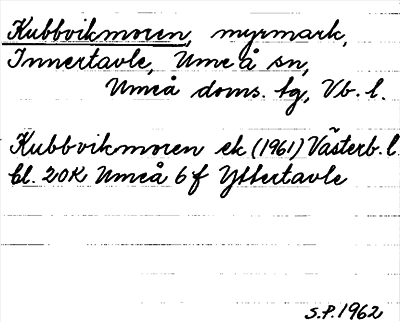 Kubbvikmoren, myrmark,
Innertavle, Umeå sn,
Umeå doms. tg, Vb. l.
Kubbvikmoren ek (1961) Västerb. l.
bl. 20K Umeå 6 f Yttertavle
S.P. 1962